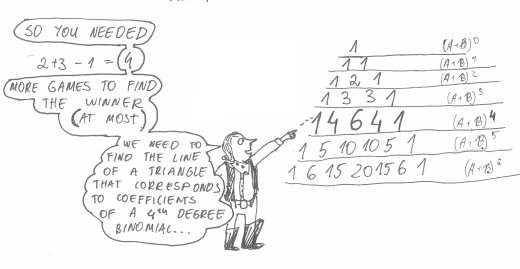 SO YOU NEEDED
2+3-1=4
MORE GAMES TO FIND
THE WINNER
(AT MOST)
WE NEED TO
FIND THE LINE
OF A TRIANGLE
THAT CORRESPONDS
TO COEFFICIENTS
OF A 4TH DEGREE
BINOMIAL...
1 (A+B)^0
1 1 (A+B)^1
1 2 1 (A+B)^2
1 3 3 1 (A+B)^3
1 4 6 4 1 (A+B)^4
1 5 10 10 5 1 (A+B)^5
1 6 15 20 15 6 1 (A+B)^6